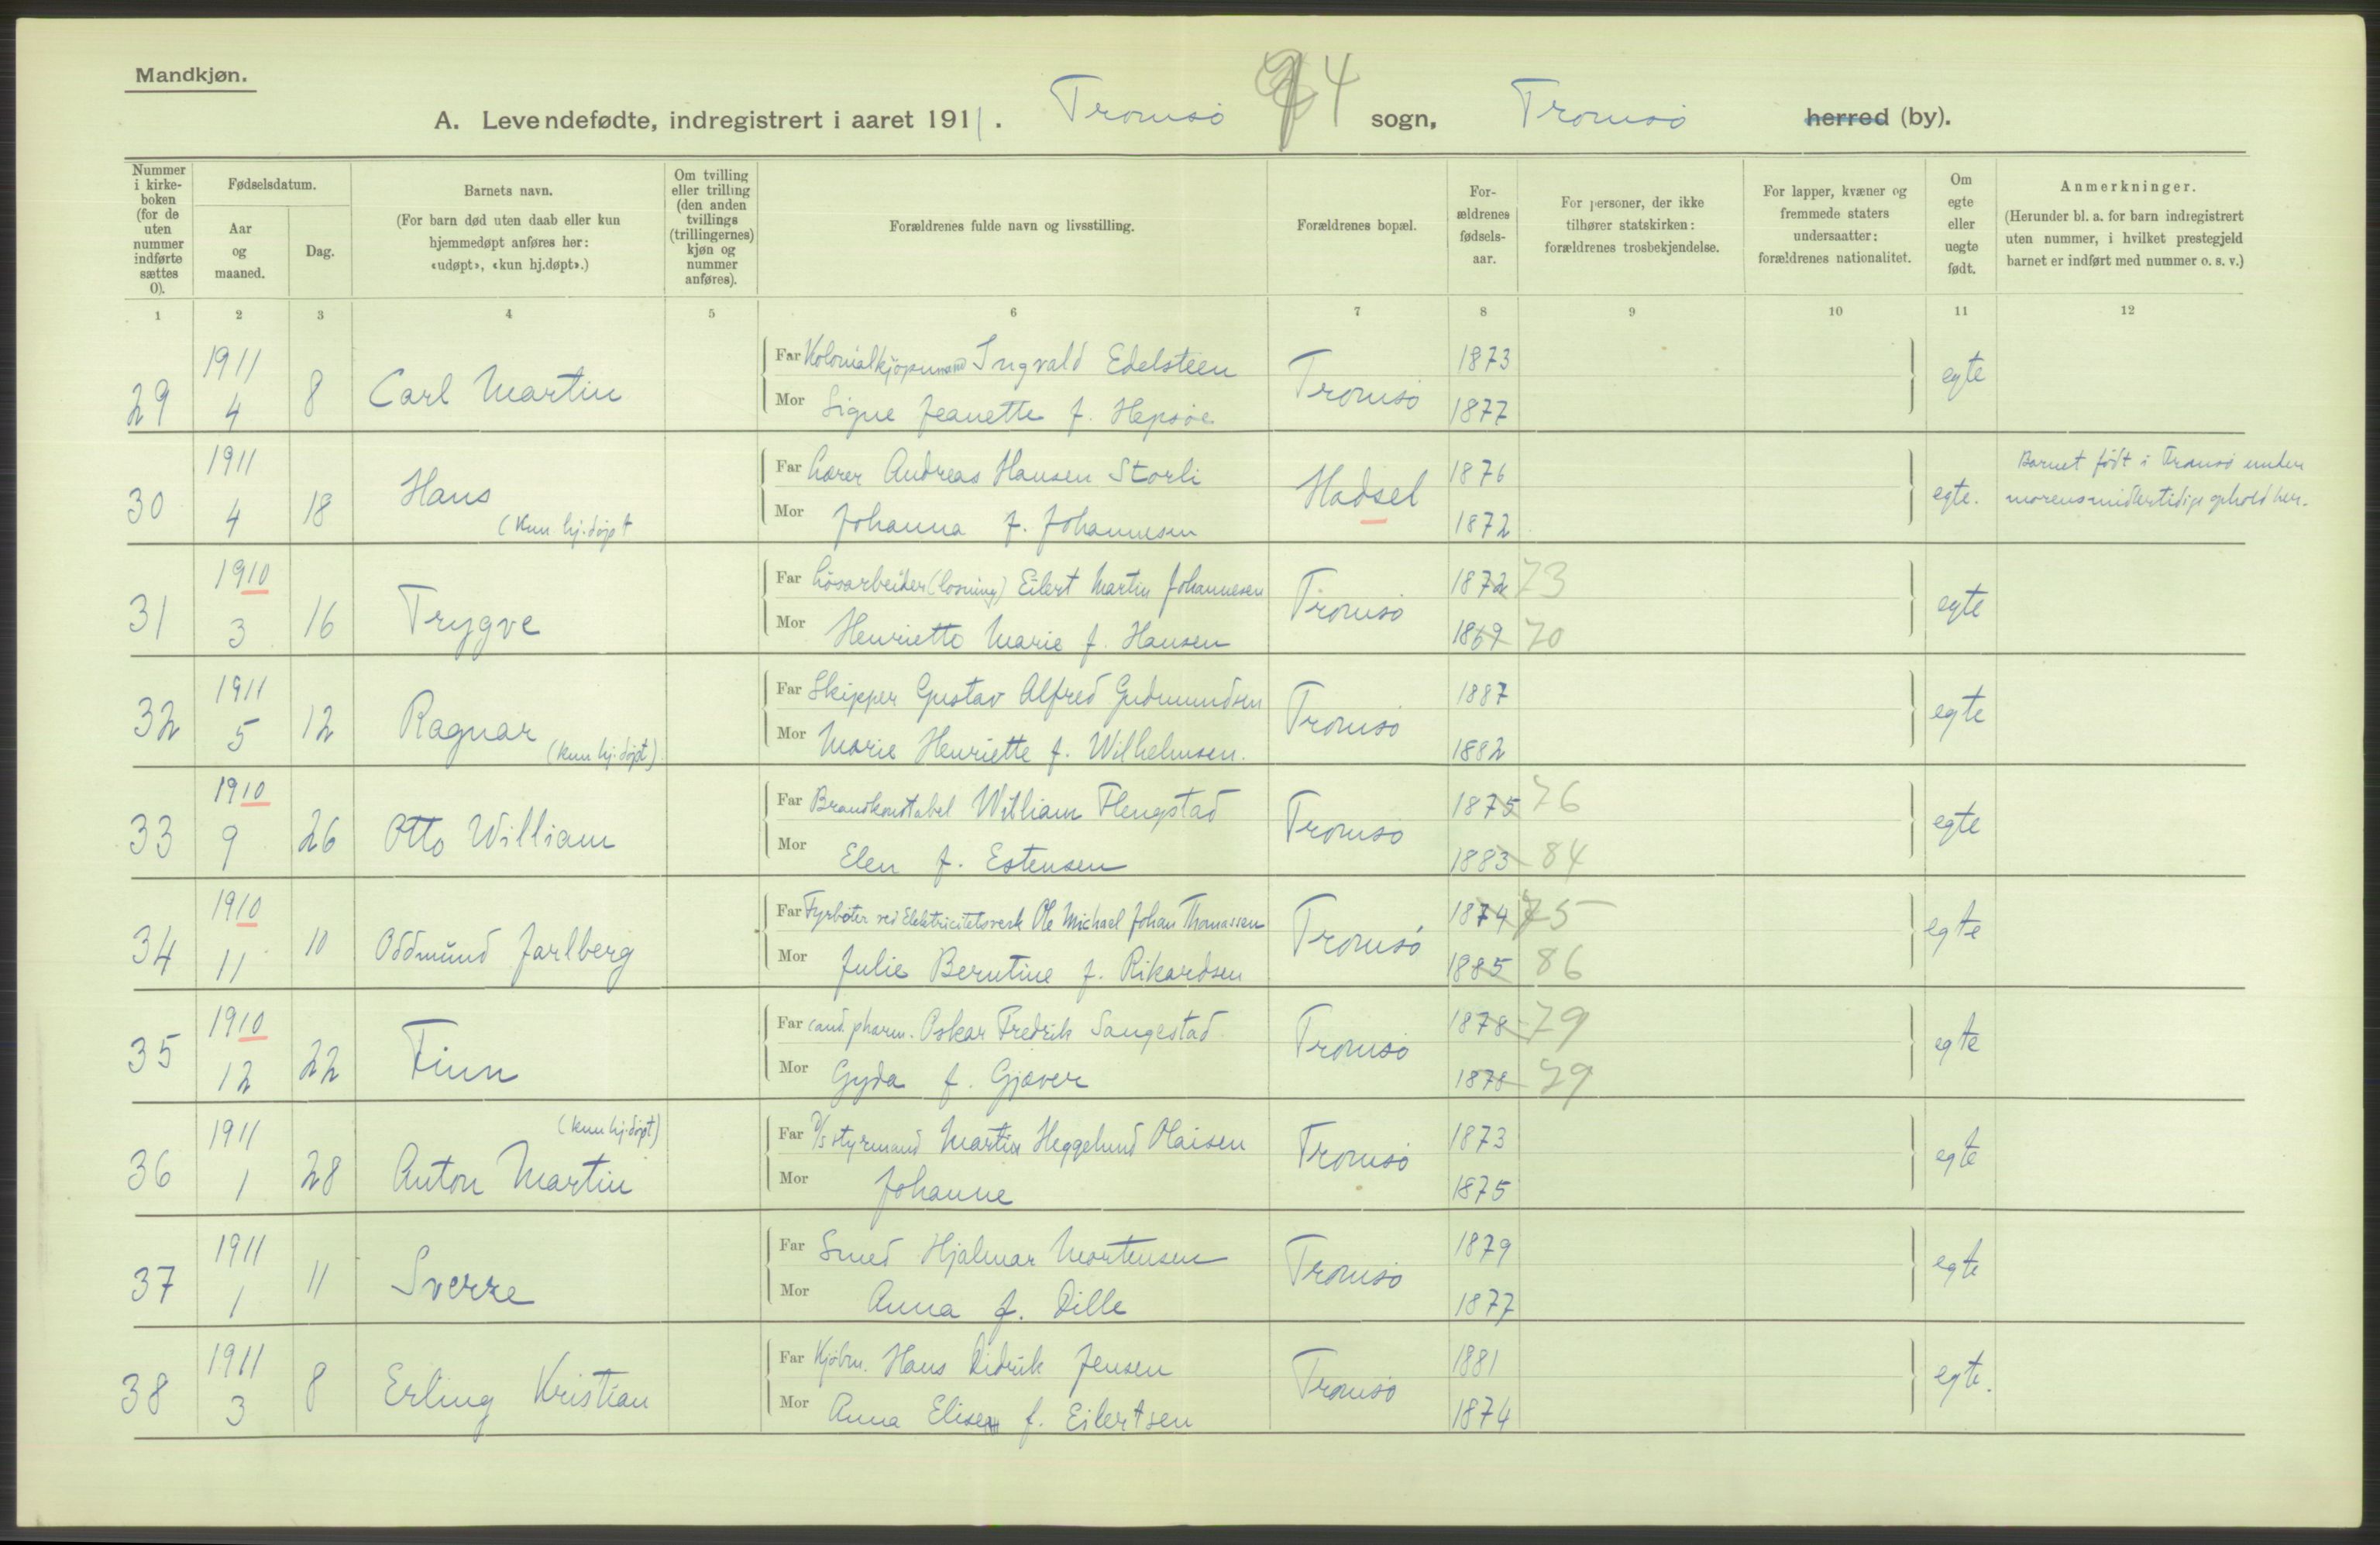 Mandkjøn.
A. Levendefødte, indregistrert i aaret 1911. Tromsö 4 sogn, Tromsö herred (by).
Nummer i kirkeboken (for de uten nummer indførte sættes 0).
Fødselsdatum.
Aar og maaned.
Dag.
Barnets navn.
(For barn død uten daab eller kun hjemmedøpt anføres her: «udøpt», «kun hj.døpt».)
Om tvilling eller trilling (den anden tvillings (trillingernes) kjøn og nummer anføres).
Forældrenes fulde navn og livsstilling.
Forældrenes bopæl.
Forældrenes fødselsaar.
For personer, der ikke tilhører statskirken: forældrenes trosbekjendelse.
For lapper, kvæner og fremmede staters undersaatter: forældrenes nationalitet.
Om egte eller uegte født.
Anmerkninger.
(Herunder bl. a. for barn indregistrert uten nummer, i hvilket prestegjeld barnet er indført med nummer o. s. v.)
1 2 3 4 5 6 7 8 9 10 11 12
29 1911 4 8 Carl Martin
Far Kolonialkjøpmand Ingvald Edelsteen Tromsö 1873 egte
Mor Signe Jeanette f. Hepsöe 1877
30 1911 4 18 Hans (kun hj.döpt
Far Lærer Andreas Hansen Storli Hadsel 1876 egte.
Mor Johanna f. Johannesen 1872
Barnet födt i Tromsö under
morens midlertidige ophold her.
31 1910 3 16 Trygve
Far Lösarbeider (losning) Eilert Martin Johannesen Tromsö 1872 73 egte
Mor Henriette Marie f. Hansen 1869 70
32 1911 5 12 Ragnar (kun hj.döpt)
Far Skipper Gustav Alfred Gudmundsen Tromsö 1887 egte
Mor Marie Henriette f. Wilhelmsen. 1882
33 1910 9 26 Otto William
Far Brandkonstabel William Flengstad Tromsö 1875 76 egte
Mor Elen f. Estensen 1883 84
34 1910 11 10 Oddmund Jarlberg
Far Fyrböter ved Elektricitetsverk Ole Michael Johan Thomassen Tromsö 1874 75 egte
Mor Julie Berntine f. Rikardsen 1885 86
35 1910 12 22 Finn
Far cand. pharm. Oskar Fredrik Sangestad Tromsö 1878 79 egte
Mor Gyda f. Gjæver 1878 79
36 1911 1 28 (kun hj.döpt) Anton Martin
Far styrmand Martin Heggelund Olaisen Tromsö 1873 egte
Mor Johanne 1875
37 1911 1 11 Sverre
Far Smed Hjalmar Mortensen Tromsö 1879 egte
Mor Anna f. Dille 1877
38 1911 3 8 Erling Kristian
Far Kjöbm. Hans Didrik Jensen Tromsö 1881 egte.
Mor Anna Elise f. Eilertsen 1874